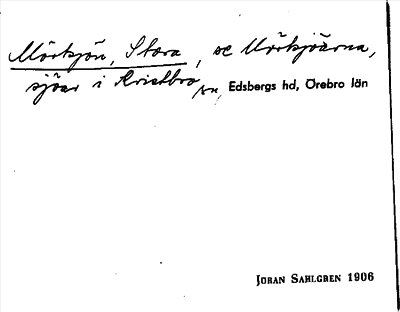 Mörksjön, Stora, se Mörksjöarna,
sjöar i Kvistbro sn, Edsbergs hd, Örebro län
JÖRAN SAHLGREN 1906